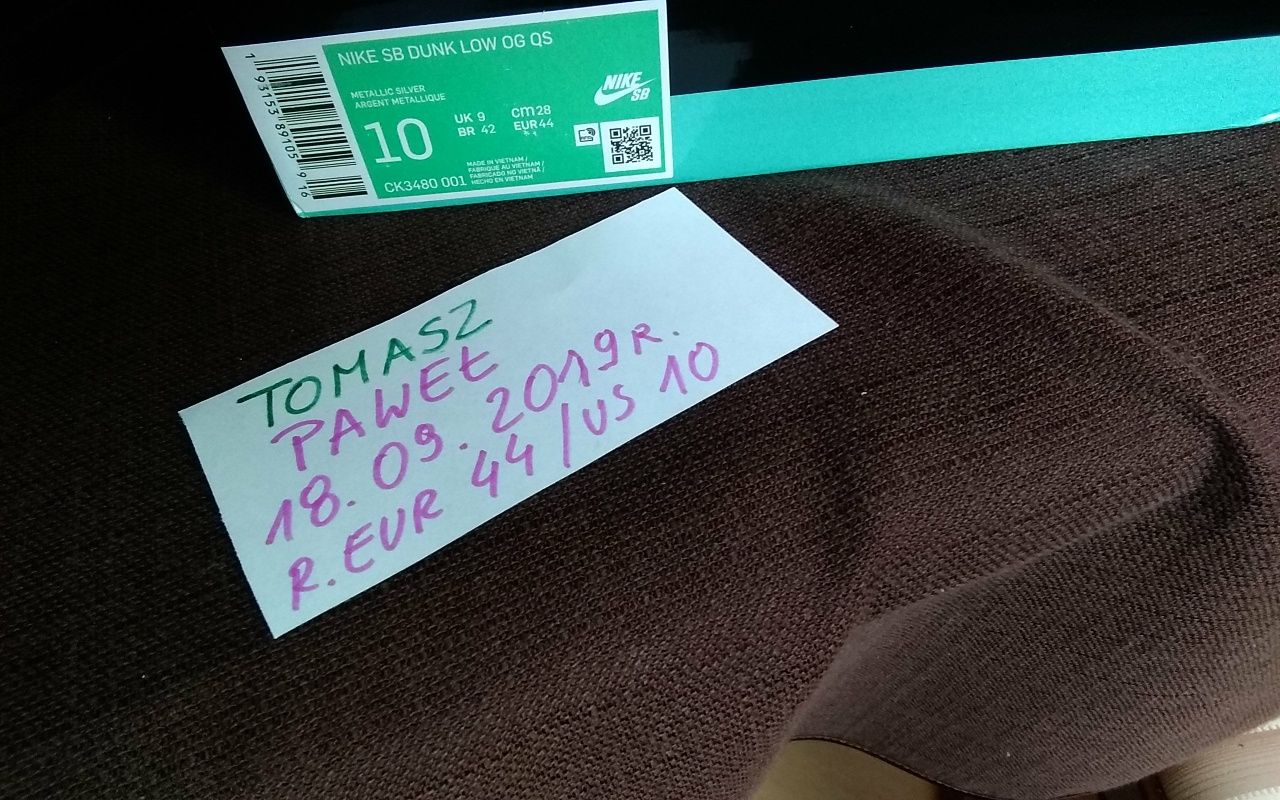 NIKE SB DUNK LOW OG QS
METALLIC SILVER
ARGENT METALLIQUE
10
UK 9
BR 42
cm 28
EUR 44
NIKE
SB
CK3480 001
MADE IN VIETNAM /
FABRIQUE AU VIETNAM /
FABRICADO NO VIETNÃ /
HECHO EN VIETNAM
1 93153 89105 9 16
TOMASZ
PAWEŁ
18.09.2019R.
R.EUR 44/US 10